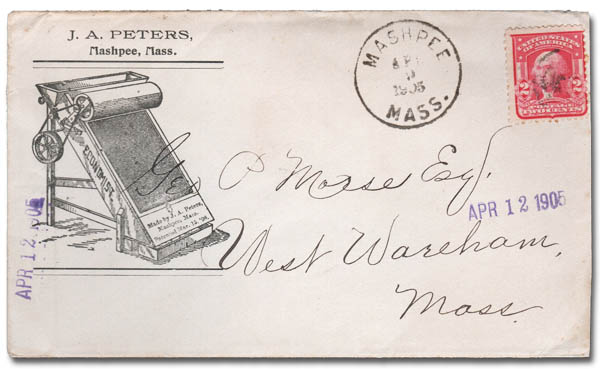 J. A. PETERS,
Mashpee, Mass.
MASHPEE
APR
1905
MASS.
UNITED STATES
OF AMERICA
2 2
POSTAGE
TWO CENTS
ECONOMIST
Made by J. A. Peters,
Mashpee, Mass.
Patented Mar.
Geo P Morse Esq.
West Wareham,
Mass.
APR 12 1905
APR 12 1905